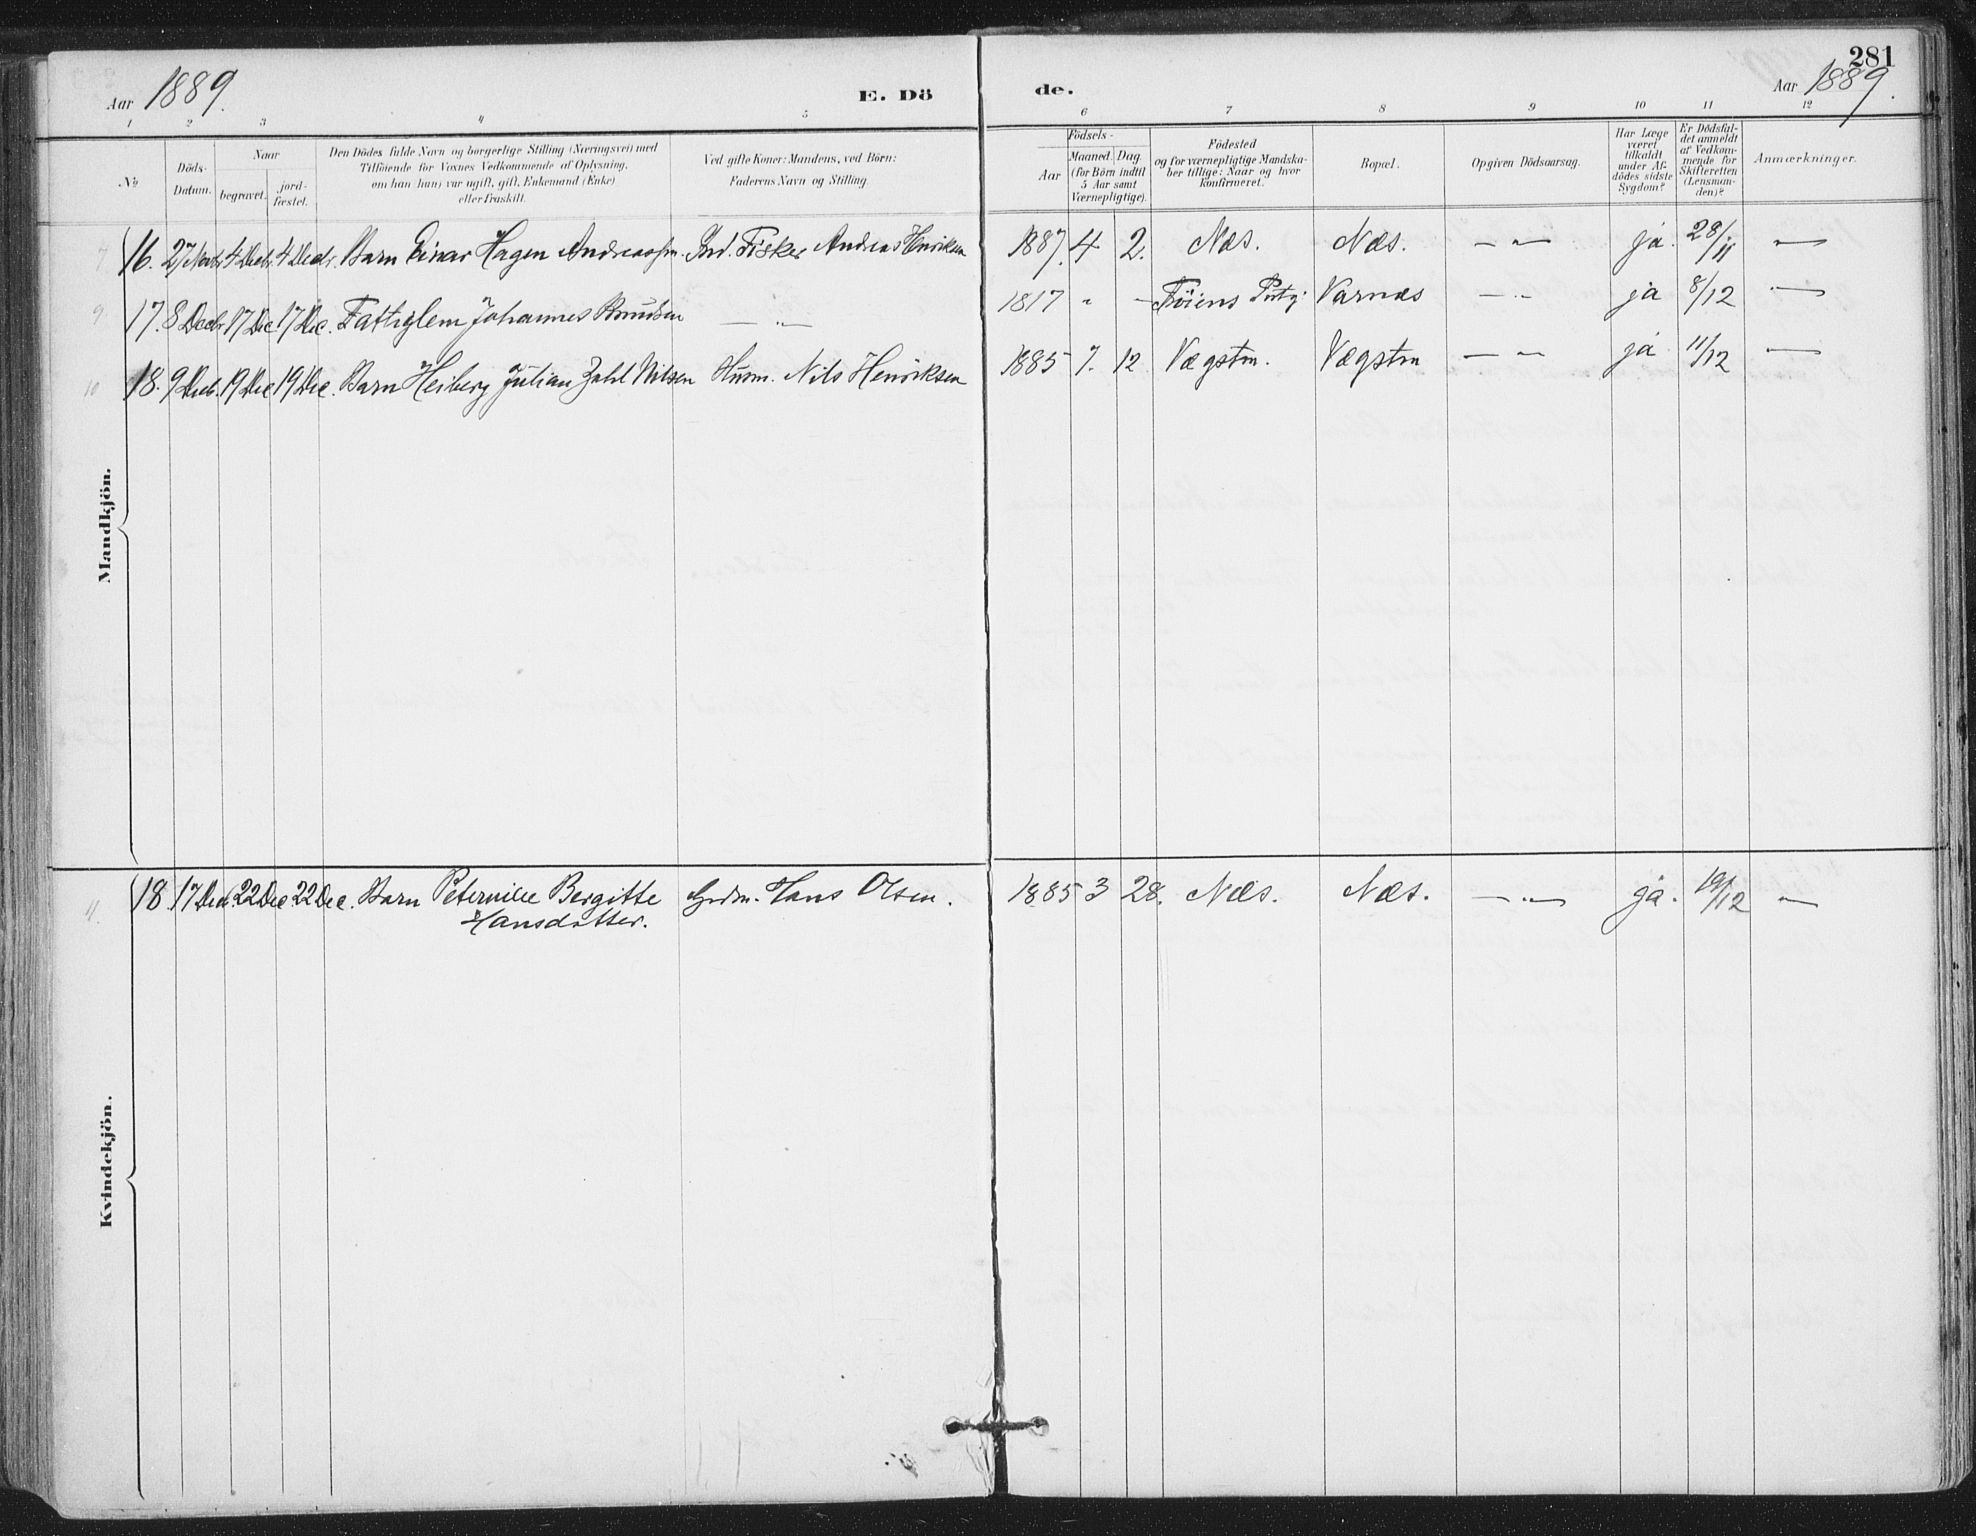 281
Aar 1889. E. Dö de. Aar 1889.
1 2 3 4 5 6 7 8 9 10 11 12
No
Döds-Datum.
Naar
begravet. jord-fæstet.
Den Dödes fulde Navn og borgerlige Stilling (Næringsvei) med
Tilföiende for Voxnes Vedkommende af Oplysning,
om han (hun) var ugift, gift, Enkemand (Enke)
eller fraskilt.
Ved gifte Koner: Mandens, ved Börn:
Faderens Navn og Stilling
Födsels-
Aar Maaned. Dag
(for Börn indtil
5 Aar samt
Værnepligtige).
Födested
og for værnepligtige Mandska-
ber tillige: Naar og hvor
konfirmeret.
Bopæl.
Opgiven Dödsaarsag.
Har Læge
været
tilkaldt
under Af-
dödes sidste
Sygdom?
Er Dödsfal-
det anmeldt
af Vedkom-
mende for
Skifteretten
(Lensman-
den)?
Anmærkninger.
Mandkjön.
7 16. 27 Novbr. 4 Decbr. 4 Decbr. Barn Einar Hagen Andreassen. Ind. Fisker Andreas Henriksen 1887. 4 2. Næs. Næs. — „ — ja. 28/11 —
9 17. 8 Decbr. 17 Dec 17 Dec. Fattiglem Johannes Knudsen — „ — 1817 - — Varnæs — „ — ja 8/12 —
10 18. 9 Decb. 19 Dec 19 Dec. Barn Heiberg Julian Zahl Nilsen Husm. Nils Henriksen 1885 7. 12 Vægstm. Vægstm — „ — ja 11/12 —
Kvindekjön.
11. 18. 17 Dec 22 Dec 22 Dec. Barn Petermille Bergitte Grdm. Hans Olsen. 1885 3 28. Næs. Næs. — „ — ja. 19/12 —
Hansdatter.